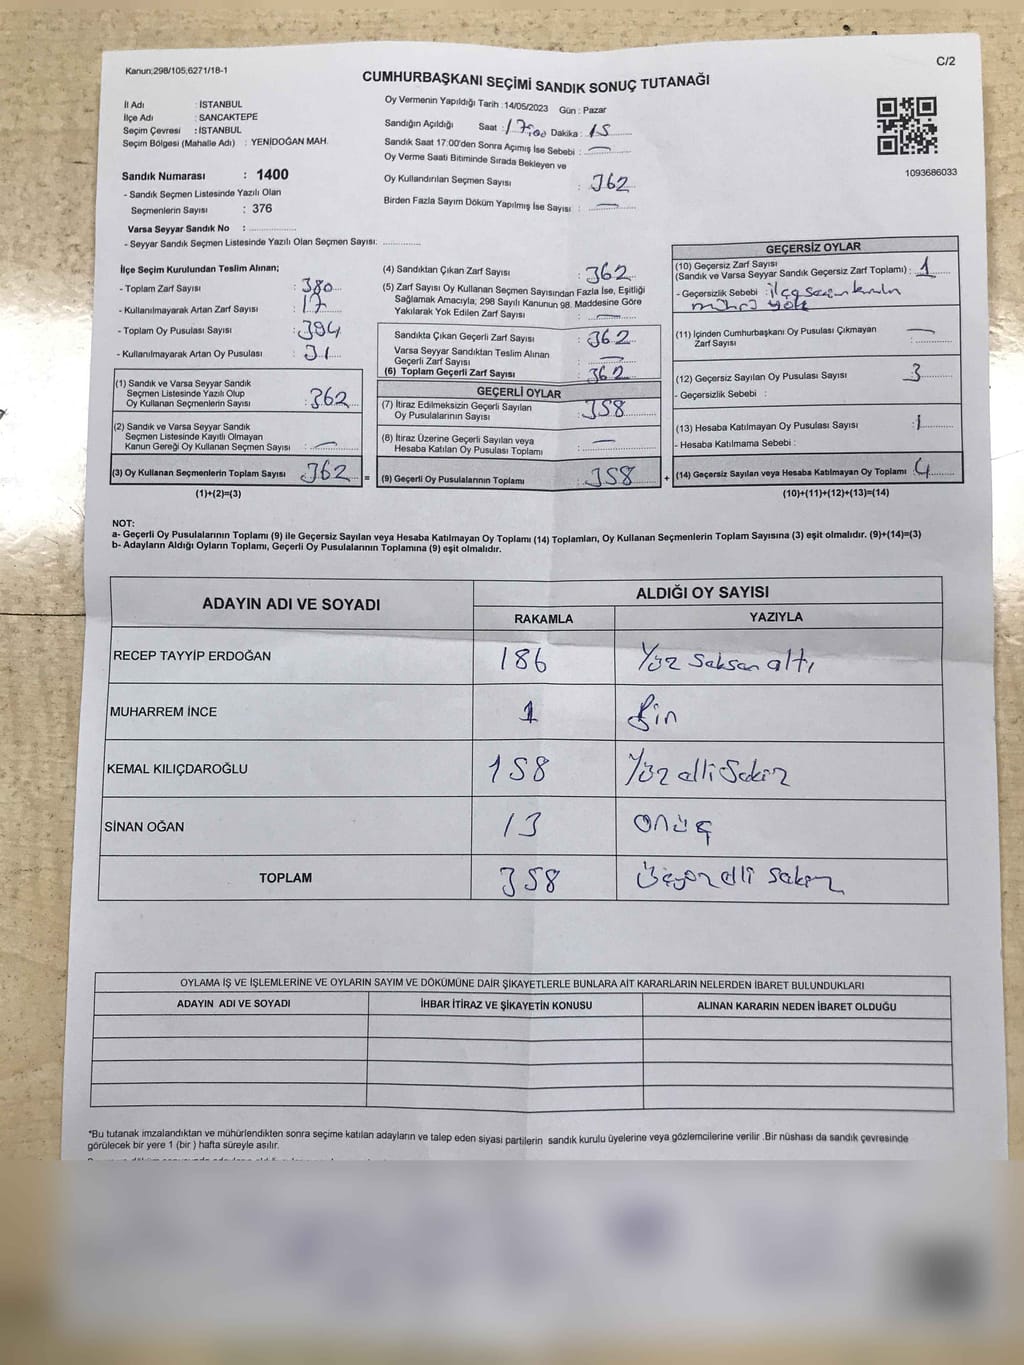 Kanun;298/105;6271/18-1
C/2
CUMHURBAŞKANI SEÇİMİ SANDIK SONUÇ TUTANAĞI
İl Adı : İSTANBUL
İlçe Adı : SANCAKTEPE
Seçim Çevresi : İSTANBUL
Seçim Bölgesi (Mahalle Adı) : YENİDOĞAN MAH.
Sandık Numarası : 1400
- Sandık Seçmen Listesinde Yazılı Olan
Seçmenlerin Sayısı : 376
Varsa Seyyar Sandık No :
- Seyyar Sandık Seçmen Listesinde Yazılı Olan Seçmen Sayısı:
Oy Vermenin Yapıldığı Tarih : 14/05/2023 Gün : Pazar
Sandığın Açıldığı Saat : 17:00 Dakika : 15
Sandık Saat 17.00'den Sonra Açımış İse Sebebi : —
Oy Verme Saati Bitiminde Sırada Bekleyen ve
Oy Kullandırılan Seçmen Sayısı : 362
Birden Fazla Sayım Döküm Yapılmış İse Sayısı : —
1093686033
İlçe Seçim Kurulundan Teslim Alınan;
- Toplam Zarf Sayısı : 380
- Kullanılmayarak Artan Zarf Sayısı : 17
- Toplam Oy Pusulası Sayısı : 394
- Kullanılmayarak Artan Oy Pusulası : 31
(1) Sandık ve Varsa Seyyar Sandık
Seçmen Listesinde Yazılı Olup
Oy Kullanan Seçmenlerin Sayısı : 362
(2) Sandık ve Varsa Seyyar Sandık
Seçmen Listesinde Kayıtlı Olmayan
Kanun Gereği Oy Kullanan Seçmen Sayısı : —
(3) Oy Kullanan Seçmenlerin Toplam Sayısı 362 =
(1)+(2)=(3)
(4) Sandıktan Çıkan Zarf Sayısı : 362
(5) Zarf Sayısı Oy Kullanan Seçmen Sayısından Fazla İse, Eşitliği
Sağlamak Amacıyla, 298 Sayılı Kanunun 98. Maddesine Göre
Yakılarak Yok Edilen Zarf Sayısı : —
Sandıkta Çıkan Geçerli Zarf Sayısı : 362
Varsa Seyyar Sandıktan Teslim Alınan
Geçerli Zarf Sayısı : —
(6) Toplam Geçerli Zarf Sayısı : 362
GEÇERLİ OYLAR
(7) İtiraz Edilmeksizin Geçerli Sayılan
Oy Pusulalarının Sayısı : 358
(8) İtiraz Üzerine Geçerli Sayılan veya
Hesaba Katılan Oy Pusulası Toplamı : —
(9) Geçerli Oy Pusulalarının Toplamı : 358 +
GEÇERSİZ OYLAR
(10) Geçersiz Zarf Sayısı
(Sandık ve Varsa Seyyar Sandık Geçersiz Zarf Toplamı) : 1
- Geçersizlik Sebebi : ilçe seçim kurulu
mührü yok
(11) İçinden Cumhurbaşkanı Oy Pusulası Çıkmayan
Zarf Sayısı : —
(12) Geçersiz Sayılan Oy Pusulası Sayısı : 3
- Geçersizlik Sebebi :
(13) Hesaba Katılmayan Oy Pusulası Sayısı : 1
- Hesaba Katılmama Sebebi :
(14) Geçersiz Sayılan veya Hesaba Katılmayan Oy Toplamı : 4
(10)+(11)+(12)+(13)=(14)
NOT:
a- Geçerli Oy Pusulalarının Toplamı (9) ile Geçersiz Sayılan veya Hesaba Katılmayan Oy Toplamı (14) Toplamları, Oy Kullanan Seçmenlerin Toplam Sayısına (3) eşit olmalıdır. (9)+(14)=(3)
b- Adayların Aldığı Oyların Toplamı, Geçerli Oy Pusulalarının Toplamına (9) eşit olmalıdır.
ADAYIN ADI VE SOYADI ALDIĞI OY SAYISI
RAKAMLA YAZIYLA
RECEP TAYYİP ERDOĞAN 186 Yüz seksen altı
MUHARREM İNCE 1 Bir
KEMAL KILIÇDAROĞLU 158 Yüz elli Sekiz
SİNAN OĞAN 13 onüç
TOPLAM 358 Üçyüz elli sekiz
OYLAMA İŞ VE İŞLEMLERİNE VE OYLARIN SAYIM VE DÖKÜMÜNE DAİR ŞİKAYETLERLE BUNLARA AİT KARARLARIN NELERDEN İBARET BULUNDUKLARI
ADAYIN ADI VE SOYADI İHBAR İTİRAZ VE ŞİKAYETİN KONUSU ALINAN KARARIN NEDEN İBARET OLDUĞU
*Bu tutanak imzalandıktan ve mühürlendikten sonra seçime katılan adayların ve talep eden siyasi partilerin sandık kurulu üyelerine veya gözlemcilerine verilir .Bir nüshası da sandık çevresinde
görülecek bir yere 1 (bir ) hafta süreyle asılır.